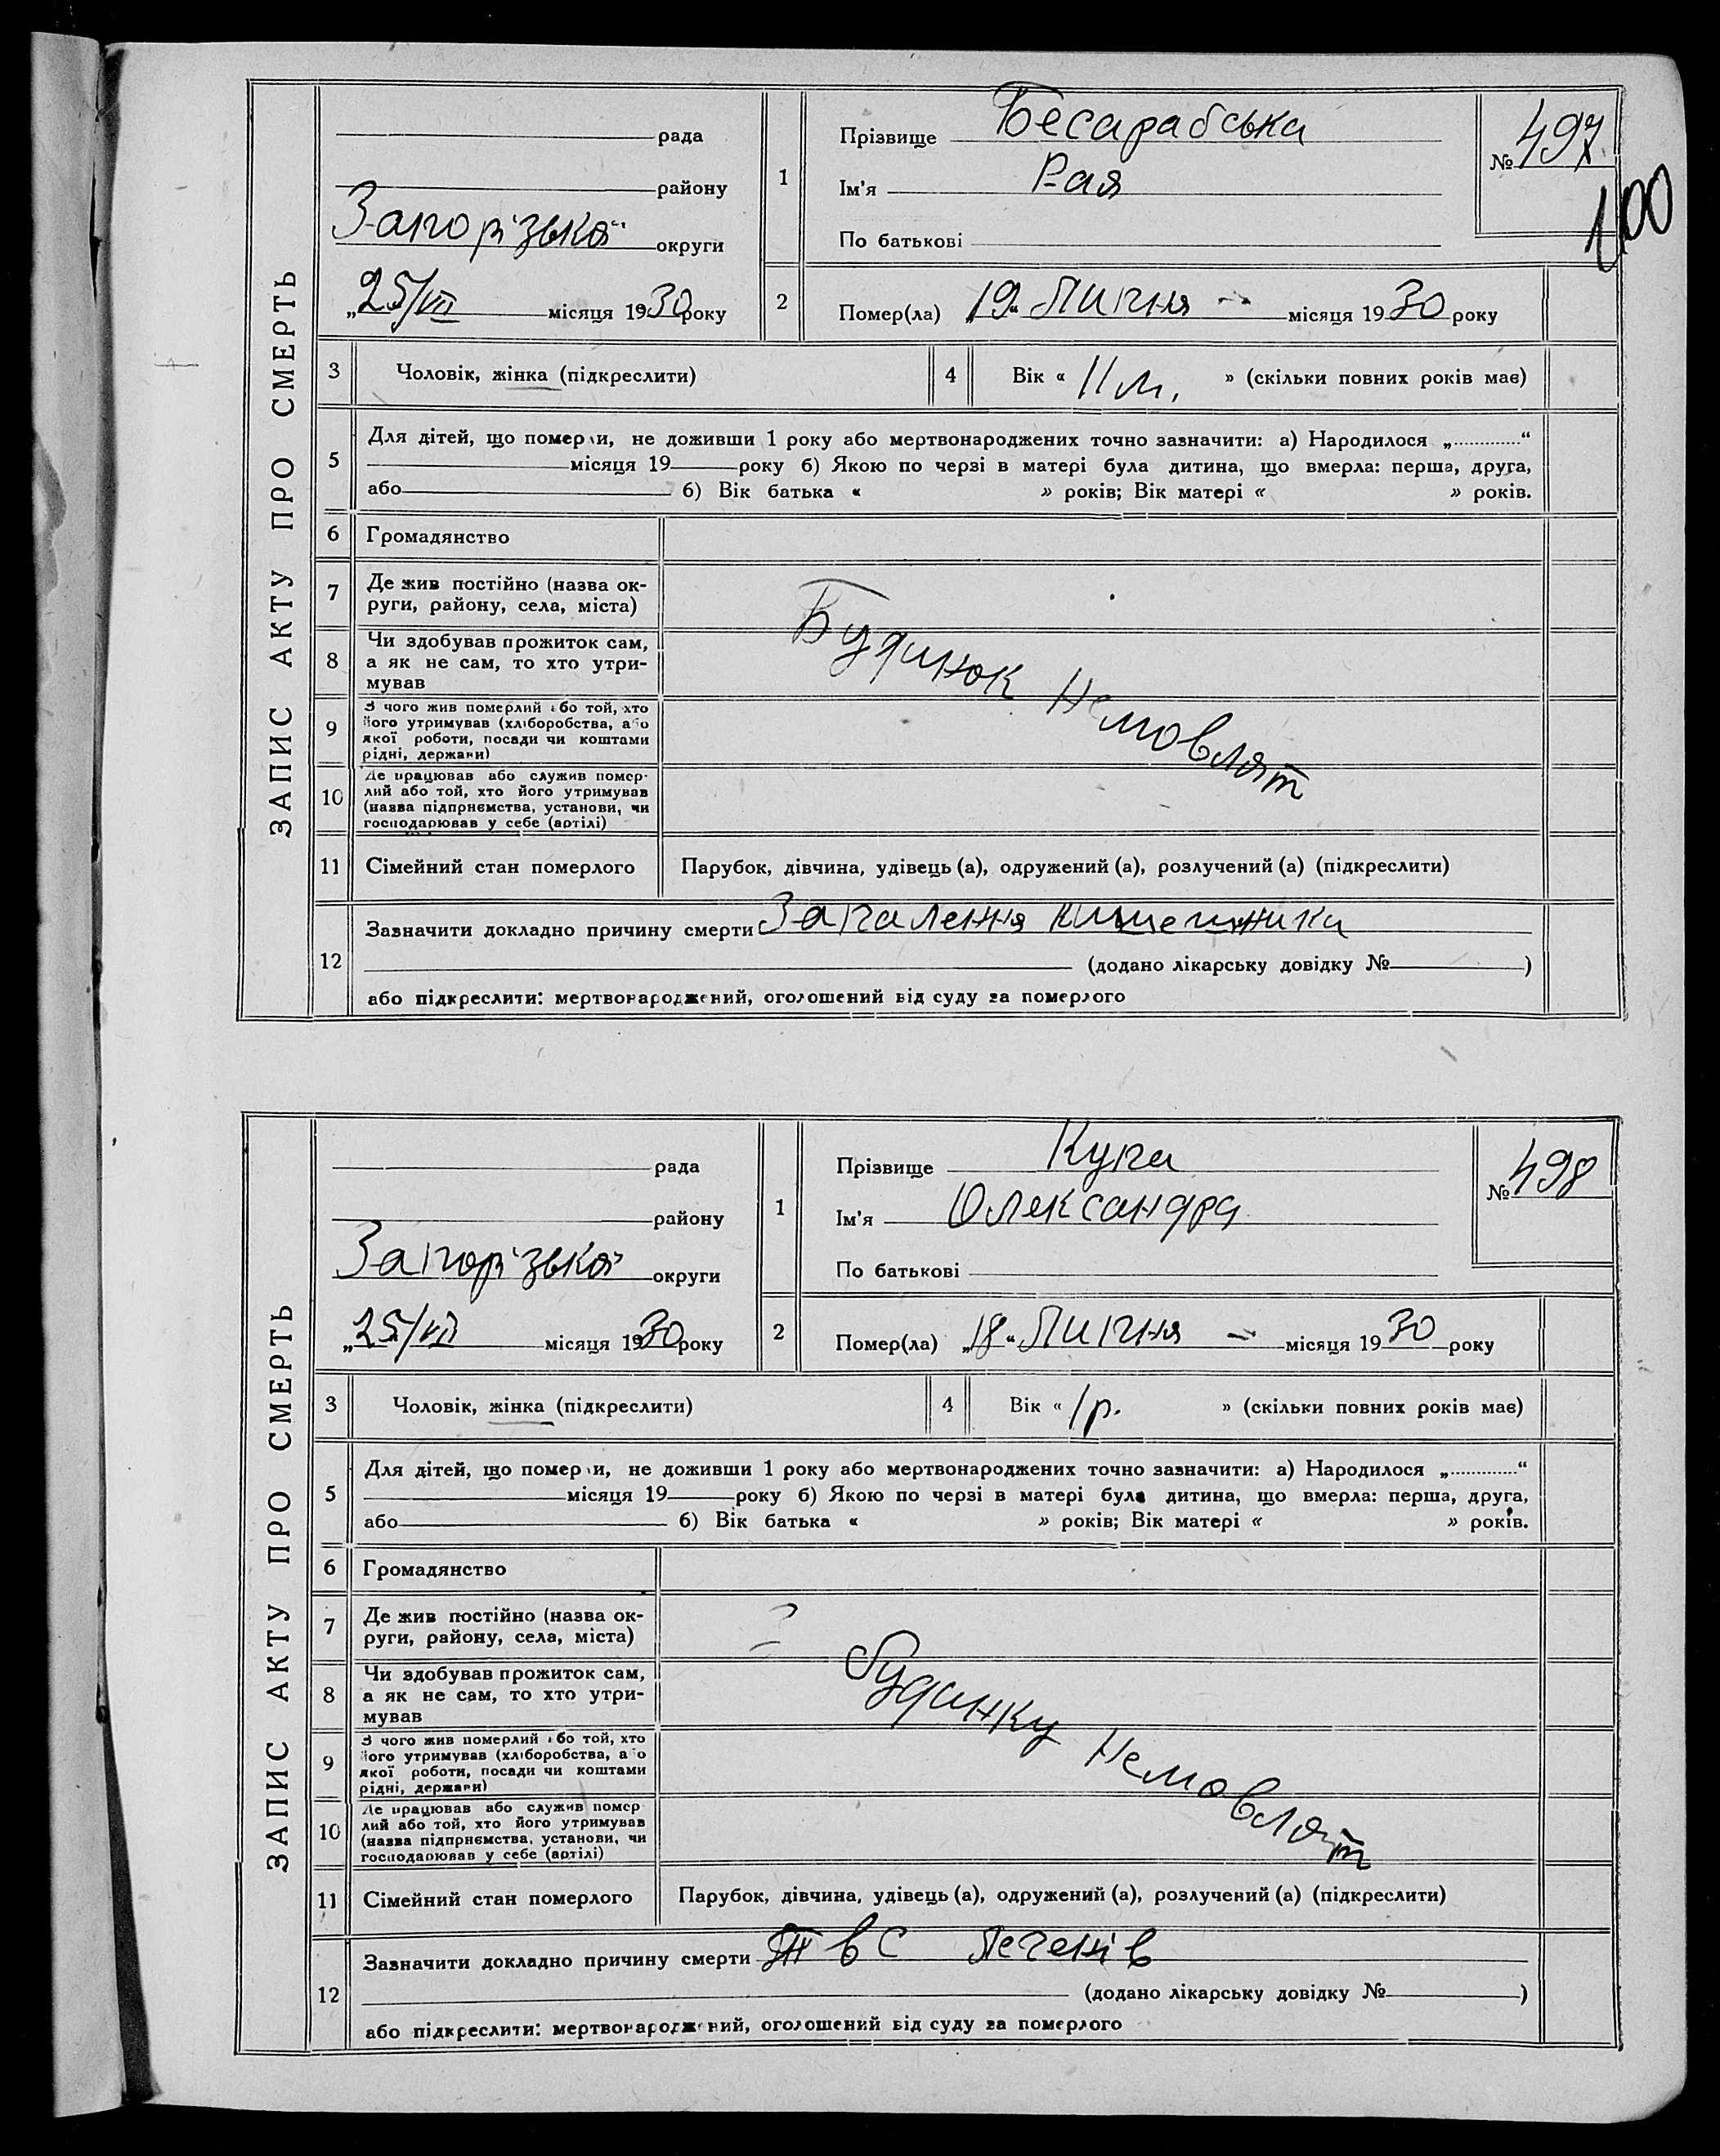 ЗАПИС АКТУ ПРО СМЕРТЬ
рада
району
Запорізької округи
„25/VII місяця 1930 року
1
Прізвище Бесарабська
Ім'я Рая
По батькові
№ 497
100
2
Помер(ла) „19“ Липня місяця 1930 року
3 Чоловік, жінка (підкреслити)
4 Вік « 11 м. » (скільки повних років має)
5
Для дітей, що померли, не доживши 1 року або мертвонароджених точно зазначити: а) Народилося „.............“
місяця 19 року б) Якою по черзі в матері була дитина, що вмерла: перша, друга,
або б) Вік батька « » років; Вік матері « » років.
6 Громадянство
7 Де жив постійно (назва ок-
руги, району, села, міста)
8 Чи здобував прожиток сам,
а як не сам, то хто утри-
мував
9 З чого жив померлий або той, хто
його утримував (хліборобства, або
якої роботи, посади чи коштами
рідні, держави)
10 Де працював або служив помер-
лий або той, хто його утримував
(назва підприємства, установи, чи
господарював у себе (артілі)
Будинок Немовлят
11 Сімейний стан померлого Парубок, дівчина, удівець (а), одружений (а), розлучений (а) (підкреслити)
12
Зазначити докладно причину смерти Запалення кишечника
(додано лікарську довідку № )
або підкреслити: мертвонароджений, оголошений від суду за померлого
ЗАПИС АКТУ ПРО СМЕРТЬ
рада
району
Запорізької округи
„25/VII місяця 1930 року
1
Прізвище Купа
Ім'я Олександра
По батькові
№ 498
2
Помер(ла) „18“ Липня місяця 1930 року
3 Чоловік, жінка (підкреслити)
4 Вік « 1 р. » (скільки повних років має)
5
Для дітей, що померли, не доживши 1 року або мертвонароджених точно зазначити: а) Народилося „.............“
місяця 19 року б) Якою по черзі в матері була дитина, що вмерла: перша, друга,
або б) Вік батька « » років; Вік матері « » років.
6 Громадянство
7 Де жив постійно (назва ок-
руги, району, села, міста)
8 Чи здобував прожиток сам,
а як не сам, то хто утри-
мував
9 З чого жив померлий або той, хто
його утримував (хліборобства, або
якої роботи, посади чи коштами
рідні, держави)
10 Де працював або служив помер-
лий або той, хто його утримував
(назва підприємства, установи, чи
господарював у себе (артілі)
будинку Немовлят
11 Сімейний стан померлого Парубок, дівчина, удівець (а), одружений (а), розлучений (а) (підкреслити)
12
Зазначити докладно причину смерти ТВС легенів
(додано лікарську довідку № )
або підкреслити: мертвонароджений, оголошений від суду за померлого